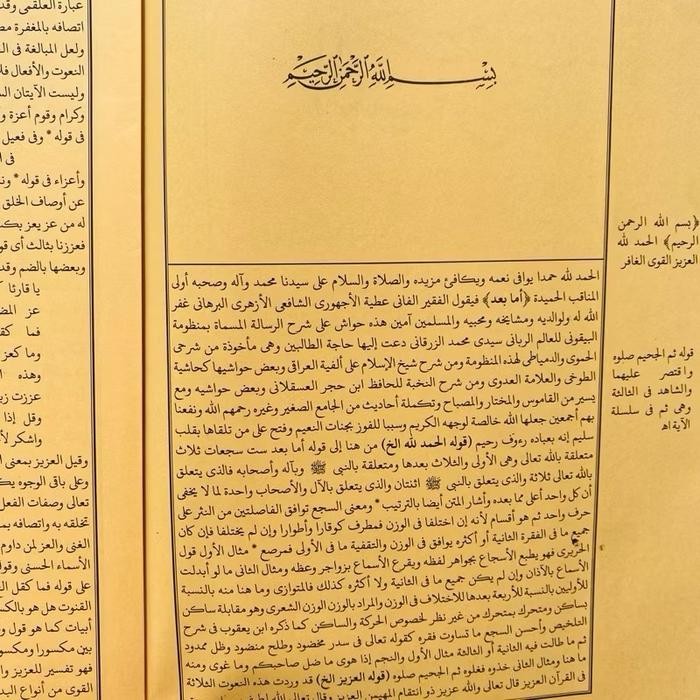 بسم الله الرحمن الرحيم
الحمد لله حمدا يوافى نعمه ويكافئ مزيده والصلاة والسلام على سيدنا محمد وآله وصحبه أولى
المناقب الحميدة ﴿أما بعد﴾ فيقول الفقير الفانى عطية الأجهورى الشافعى الأزهرى البرهانى غفر
الله له ولوالديه ومشايخه ومحبيه والمسلمين آمين هذه حواش على شرح الرسالة المسماة بمنظومة
البيقونى للعالم الربانى سيدى محمد الزرقانى دعت إليها حاجة الطالبين وهى مأخوذة من شرحى
الحموى والدمياطى لهذه المنظومة ومن شرح شيخ الإسلام على ألفية العراقى وبعض حواشيها كحاشية
الطوخى والعلامة العدوى ومن شرح النخبة للحافظ ابن حجر العسقلانى وبعض حواشيه ومع
يسير من القاموس والمختار والمصباح وتكملة أحاديث من الجامع الصغير وغيره رحمهم الله ونفعنا
بهم أجمعين جعلها الله خالصة لوجهه الكريم وسببا للفوز بجنات النعيم وفتح على من تلقاها بقلب
سليم إنه بعباده رءوف رحيم (قوله الحمد لله الخ) من هنا إلى قوله أما بعد ست سجعات ثلاث
متعلقة بالله تعالى وهى الأولى والثلاث بعدها ومتعلقة بالنبى ﷺ وبآله وأصحابه فالذى يتعلق
بالله تعالى ثلاثة والذى يتعلق بالنبى ﷺ اثنتان والذى يتعلق بالآل والأصحاب واحدة لما لا يخفى
أن كل واحد أعلى مما بعده وأشار المتن أيضا بالترتيب * ومعنى السجع توافق الفاصلتين من النثر على
حرف واحد ثم هو أقسام لأنه إن اختلفا فى الوزن فمطرف كوقارا وأطوارا وإن لم يختلفا فإن كان
جميع ما فى الفقرة الثانية أو أكثره يوافق فى الوزن والتقفية ما فى الأولى فمرصع * مثال الأول قول
الحريرى فهو يطبع الأسجاع بجواهر لفظه ويقرع الأسماع بزواجر وعظه ومثال الثانى ما لو أبدلت
الأسماع بالآذان وإن لم يكن جميع ما فى الثانية ولا أكثره كذلك فالمتوازى وما هنا منه بالنسبة
للأوليين بالنسبة للأربعة بعدها للاختلاف فى الوزن والمراد بالوزن الوزن الشعرى وهو مقابلة ساكن
بساكن ومتحرك بمتحرك من غير نظر لخصوص الحركة والساكن كما ذكره ابن يعقوب فى شرح
التلخيص وأحسن السجع ما تساوت فقره كقوله تعالى فى سدر مخضود وطلح منضود وظل ممدود
ثم ما طالت فيه الثانية أو الثالثة مثال الأول والنجم إذا هوى ما ضل صاحبكم وما غوى ومنه
ما هنا ومثال الثانى خذوه فغلوه ثم الجحيم صلوه (قوله العزيز الخ) قد وردت هذه النعوت الثلاثة
فى القرآن العزيز قال تعالى والله عزيز ذو انتقام المهيمن العزيز وقال تعالى الله لطيف
﴿بسم الله الرحمن
الرحيم﴾ الحمد لله
العزيز القوى الغافر
قوله ثم الجحيم صلوه
واقتصر عليهما
والشاهد فى الثالثة
وهى ثم فى سلسلة
الآية اه
عبارة العلقمى
اتصافه بالمغفرة
ولعل المبالغة فى
النعوت والأفعال
وليست الآيتان
وكرام وقوم أعزة
فى قوله * وفى فعيل
وأعزاء فى قوله *
عن أوصاف الخلق
له من عز يعز
فعززنا بثالث أى
وبعضها بالضم
يا قارئا
عز
فما
وما كعز
وهذه
عززت
وقل إذا
واشكر
وقيل العزيز بمعنى
وعلى باقى الوجوه
تعالى وصفات الفعل
تخلقه به واتصافه
الغنى والعز لمن داوم
الأسماء الحسنى
على قوله فما كقل
القنوت هل هو
أبيات كما هو قول
بين مكسورا
فهو تفسير للعزيز
القوى من أنواع